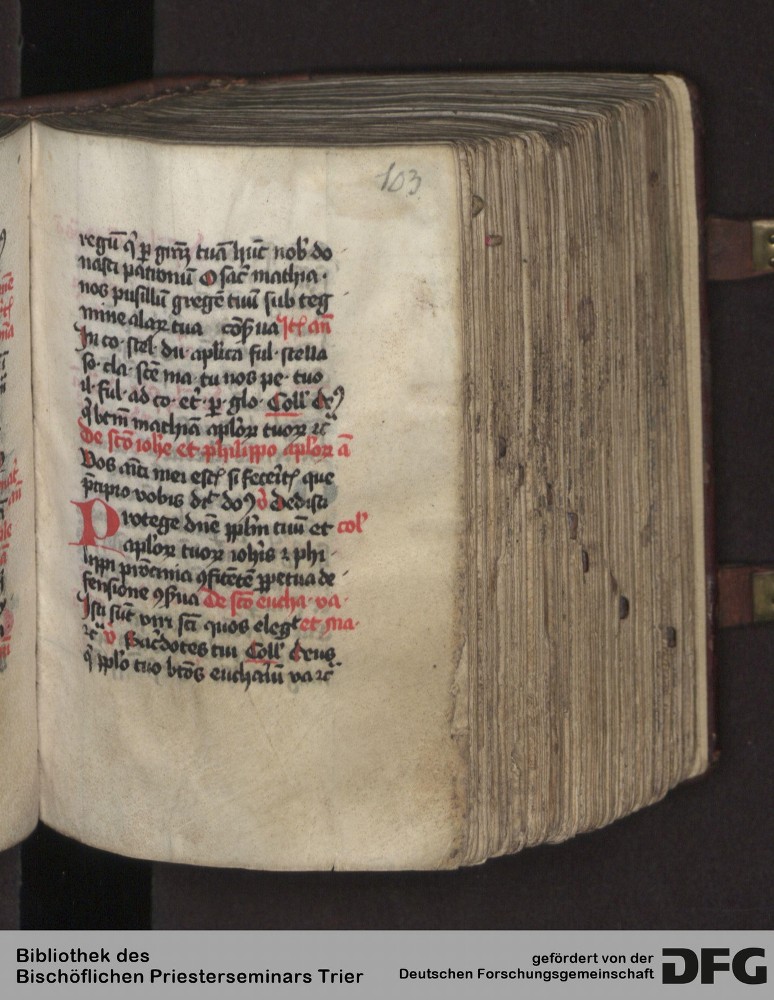 103
regū q̄ ꝑ gr̄az tuā hūc nob᷒ do
nasti patronū O sāc mathia·
nos pusillū gregē tuū sub teg
mine alaꝝ tua
In co· stel· du· aplica ful· stella
so· cla· scē ma· tu nos pe· tuo
fil· ful· ad co· et· ꝑ· glo· Coll᷒ ds᷒
q̄ btm̄ mathiā aplōꝝ tuoꝝ ⁊c̄
De scō ioh̄e et philippo aplōꝝ ā
Vos amici mei estꝭ si fecītꝭ que
p̄cipio vobis dic̄ do᷒ v̄ Dedisti
Protege dn̄e pplm̄ tuū et col᷒
aplōꝝ tuoꝝ ioh̄is ⁊ phi
lippi p̄rocinia ꝯfitētē ꝑpetua de
fensione ꝯẜua De scō eucha· va·
Isti sūt viri scī quos elegt et ma·
⁊c̄ v̄ Sac̄dotes tui Coll᷒ Deus
q̄ pplo tuo btōs euchaliū va ⁊c̄
Bibliothek des
Bischöflichen Priesterseminars Trier
gefördert von der
Deutschen Forschungsgemeinschaft
DFG